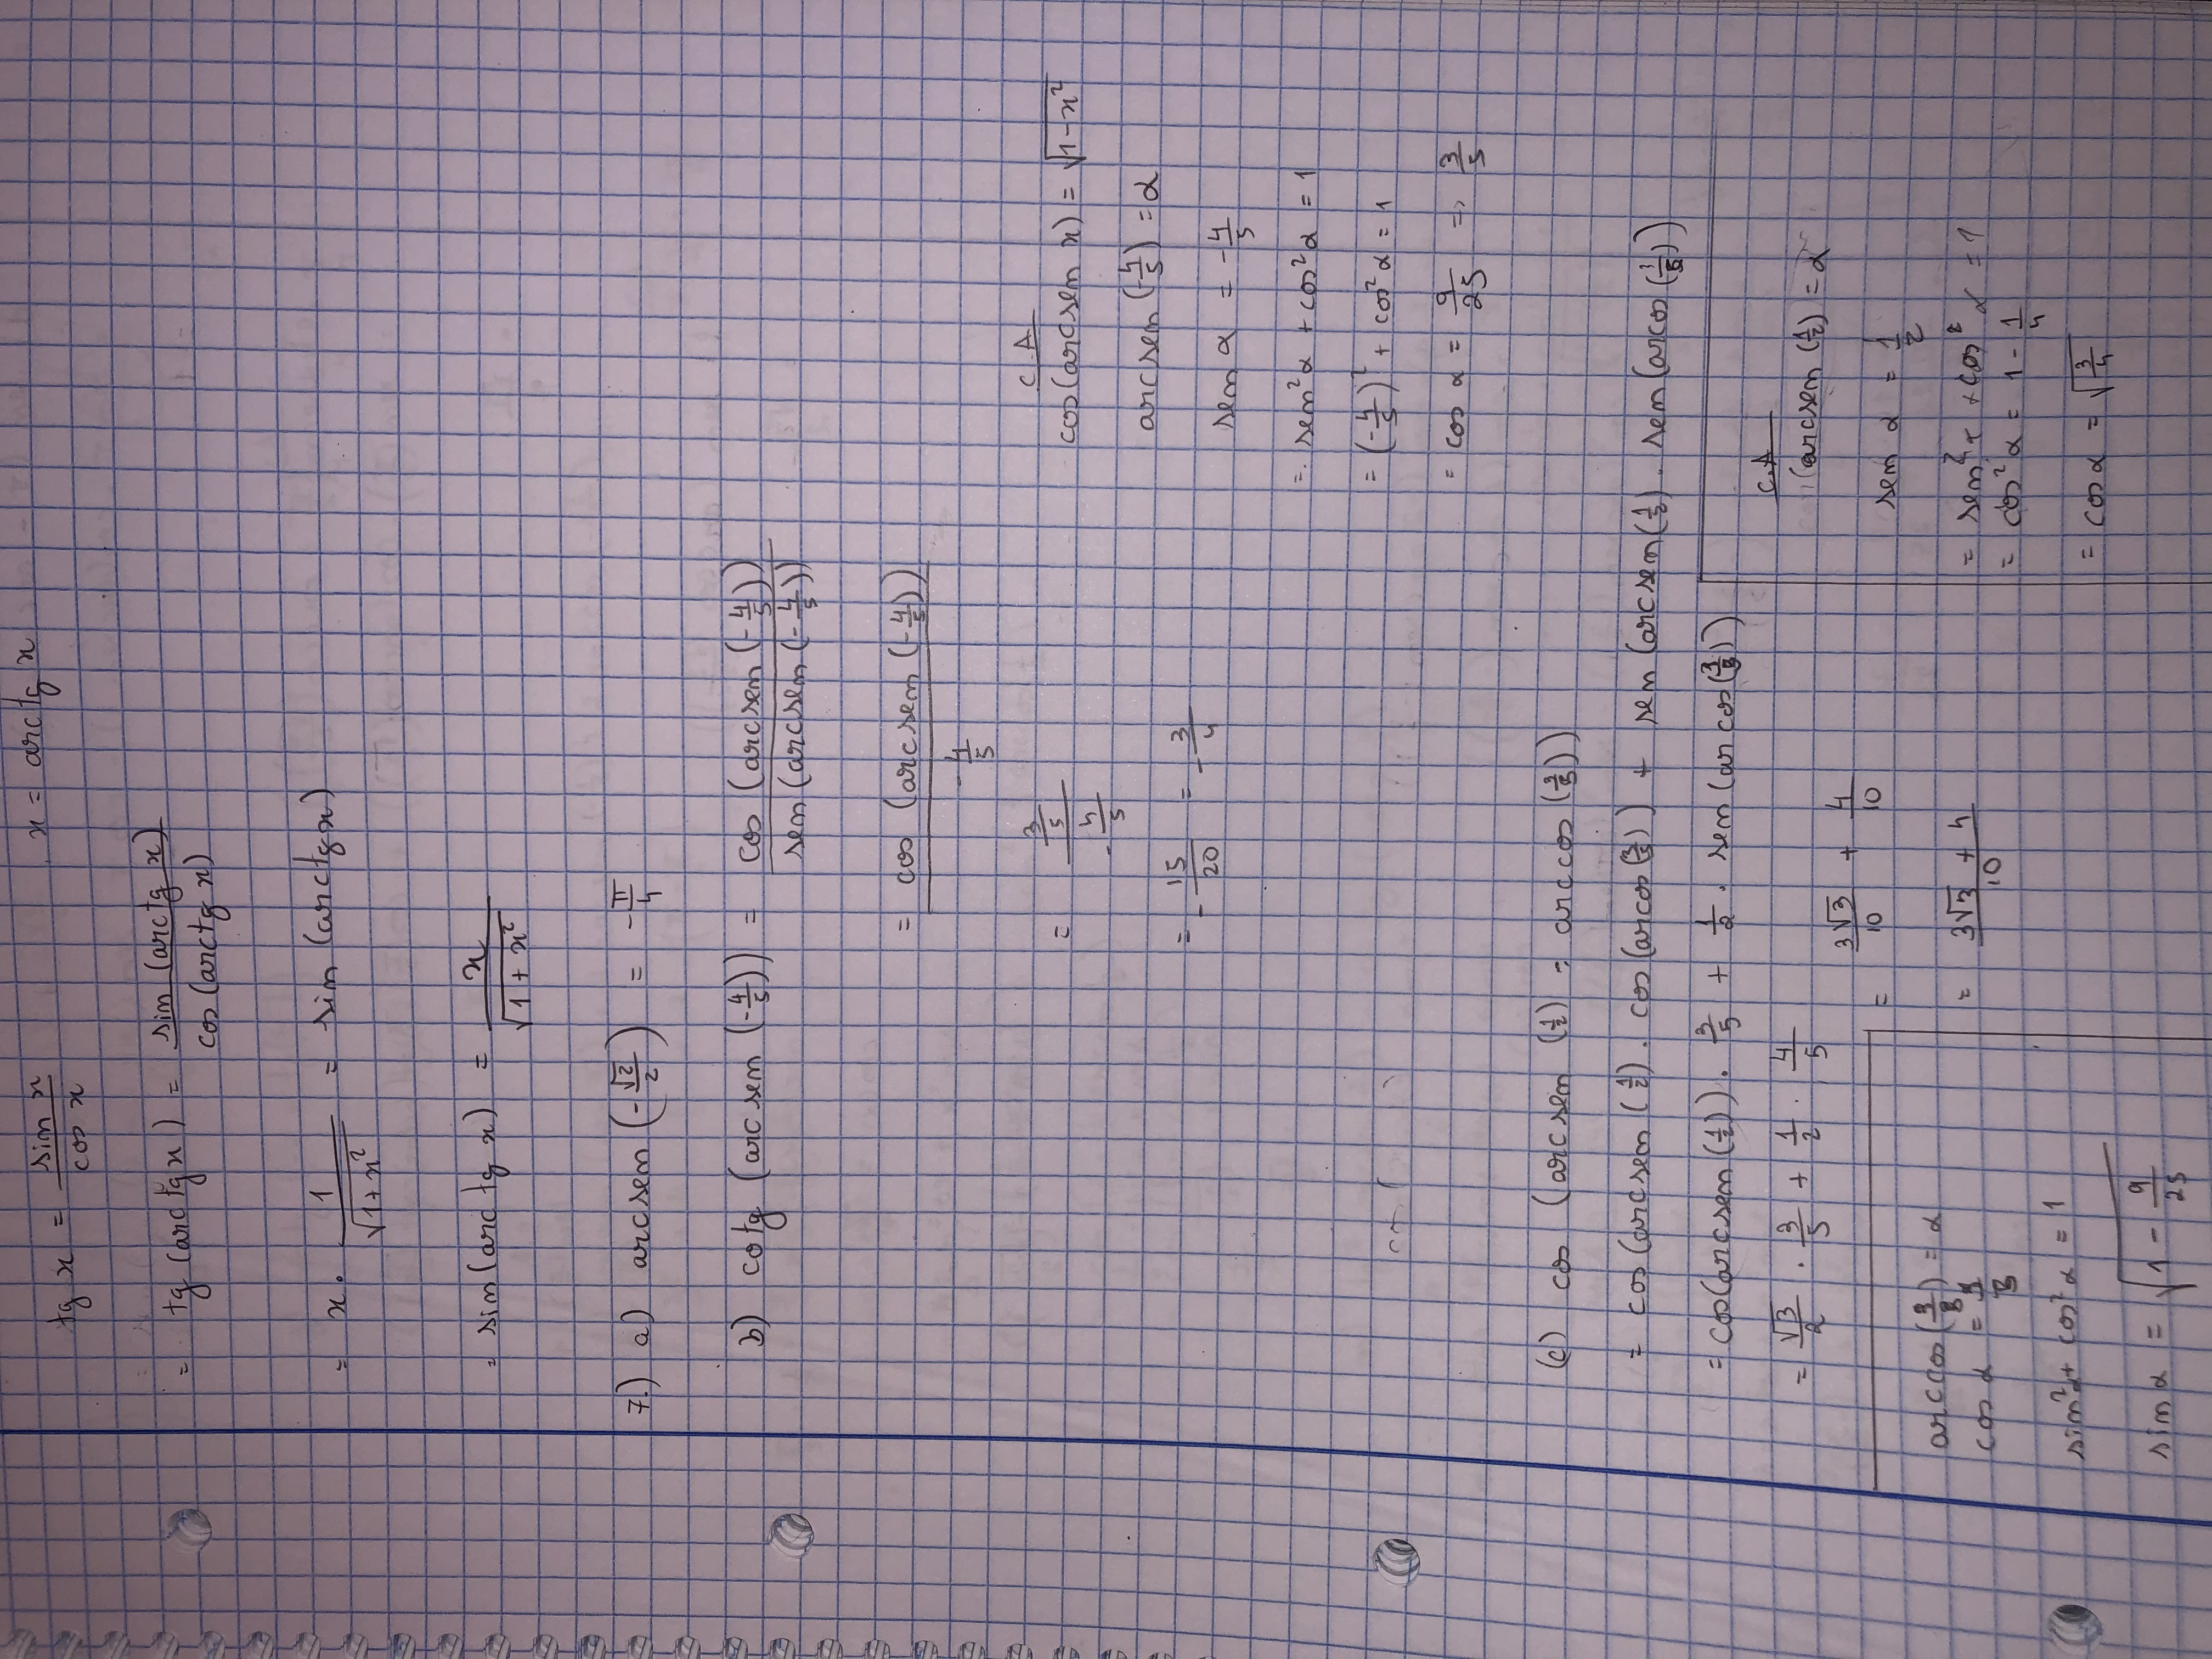 tg x = sin x / cos x        x = arctg x
= tg (arctg x) = sin (arctg x) / cos (arctg x)
= x · 1/√(1+x²) = sin (arctg x)
= sin (arc tg x) = x/√(1+x²)
7.) a) arcsen (-√2/2) = -π/4
b) cotg (arcsen (-4/5)) = cos (arcsen (-4/5)) / sen (arcsen (-4/5))
= cos (arcsen (-4/5)) / -4/5
= 3/5 / -4/5
= -15/20 = -3/4
C.A
cos(arcsen x) = √(1-x²)
arcsen (-4/5) = α
sen α = -4/5
=. sen²α + cos²α = 1
= (-4/5)² + cos²α = 1
= cos α = 9/25 => 3/5
(c) cos (arcsen (1/2) = arccos (3/5))
= cos (arcsen (1/2) . cos (arcos (3/5)) + sen (arcsen (1/2) . sen (arcos (3/5))
= cos(arcsen (1/2)) . 3/5 + 1/2 . sen (arcos (3/5))
= √3/2 . 3/5 + 1/2 . 4/5
= 3√3/10 + 4/10
= 3√3 + 4 / 10
arccos (3/5) = α
cos α = 3/5
sin²α + cos²α = 1
sin α = √(1 - 9/25)
C.A
(arcsen (1/2) = α
sen α = 1/2
= sen²α + cos²α = 1
= cos²α = 1 - 1/4
= cos α = √(3/4)